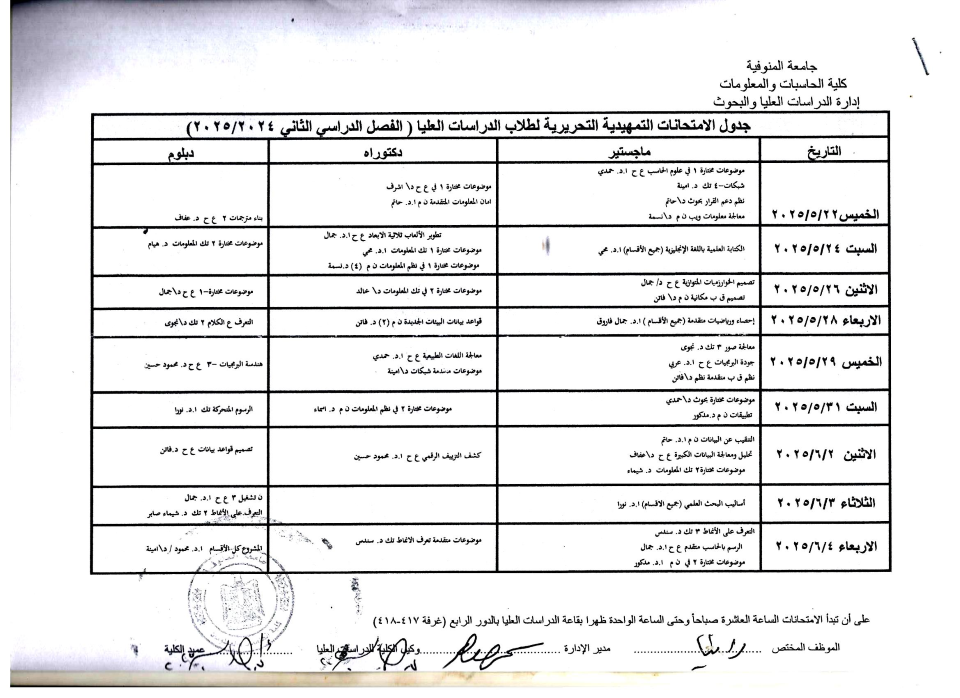 جامعة المنوفية
كلية الحاسبات والمعلومات
إدارة الدراسات العليا والبحوث
جدول الامتحانات التمهيدية التحريرية لطلاب الدراسات العليا ( الفصل الدراسي الثاني ٢٠٢٥/٢٠٢٤)
التاريخ ماجستير دكتوراه دبلوم
الخميس ٢٠٢٥/٥/٢٢
موضوعات مختارة ١ في علوم الحاسب ع ح ا.د. حمدي
شبكات-٤ تك د. امينة
نظم دعم القرار بحوث د\حاتم
معالجة معلومات ويب ن م د\نسمة
موضوعات مختارة ١ في ع ح د\ اشرف
امان المعلومات المتقدمة ن م ا.د. حاتم
بناء مترجمات ٢ ع ح د. عفاف
السبت ٢٠٢٥/٥/٢٤
الكتابة العلمية باللغة الإنجليزية (جميع الأقسام) ا.د. محي
تطوير الألعاب ثلاثية الابعاد ع ح ا.د. جمال
موضوعات مختارة ١ تك المعلومات ا.د. محي
موضوعات مختارة ١ في نظم المعلومات ن م (٤) د.نسمة
موضوعات مختارة ٢ تك المعلومات د. هيام
الاثنين ٢٠٢٥/٥/٢٦
تصميم الخوارزميات المتوازية ع ح د/ جمال
تصميم ق ب مكانية ن م د\ فاتن
موضوعات مختارة ٢ في تك المعلومات د\ خالد
موضوعات مختارة-١ ع ح د\جمال
الاربعاء ٢٠٢٥/٥/٢٨
إحصاء ورياضيات متقدمة (جميع الأقسام ) ا.د. جمال فاروق
قواعد بيانات البيئات الجديدة ن م (٢) د. فاتن
التعرف ع الكلام ٢ تك د\نجوى
الخميس ٢٠٢٥/٥/٢٩
معالجة صور ٣ تك د. نجوى
جودة البرمجيات ع ح ا.د. عربي
نظم ق ب متقدمة نظم د\فاتن
معالجة اللغات الطبيعية ع ح ا.د. حمدي
موضوعات متقدمة شبكات د\امينة
هندسة البرمجيات -٣ ع ح د. محمود حسين
السبت ٢٠٢٥/٥/٣١
موضوعات مختارة بحوث د\حمدي
تطبيقات ن م د.مدكور
موضوعات مختارة ٢ في نظم المعلومات ن م د. اسماء
الرسوم المتحركة تك ا.د. نورا
الاثنين ٢٠٢٥/٦/٢
التنقيب عن البيانات ن م ا.د. حاتم
تحليل ومعالجة البيانات الكبيرة ع ح د\عفاف
موضوعات مختارة٢ تك المعلومات د. شيماء
كشف التزييف الرقمي ع ح ا.د. محمود حسين
تصميم قواعد بيانات ع ح د.فاتن
الثلاثاء ٢٠٢٥/٦/٣
أساليب البحث العلمي (جميع الاقسام) ا.د. نورا
ن تشغيل ٣ ع ح ا.د. جمال
التعرف على الأنماط ٢ تك د. شيماء صابر
الاربعاء ٢٠٢٥/٦/٤
التعرف على الأنماط ٣ تك د. سندس
الرسم بالحاسب متقدم ع ح ا.د. جمال
موضوعات مختارة ٢ في ن م ا.د. مدكور
موضوعات متقدمة تعرف الانماط تك د. سندس
المشروع كل الأقسام ا.د. محمود / د\امينة
على أن تبدأ الامتحانات الساعة العاشرة صباحاً وحتى الساعة الواحدة ظهرا بقاعة الدراسات العليا بالدور الرابع (غرفة ٤١٧-٤١٨)
الموظف المختص مدير الإدارة وكيل الكلية للدراسات العليا عميد الكلية